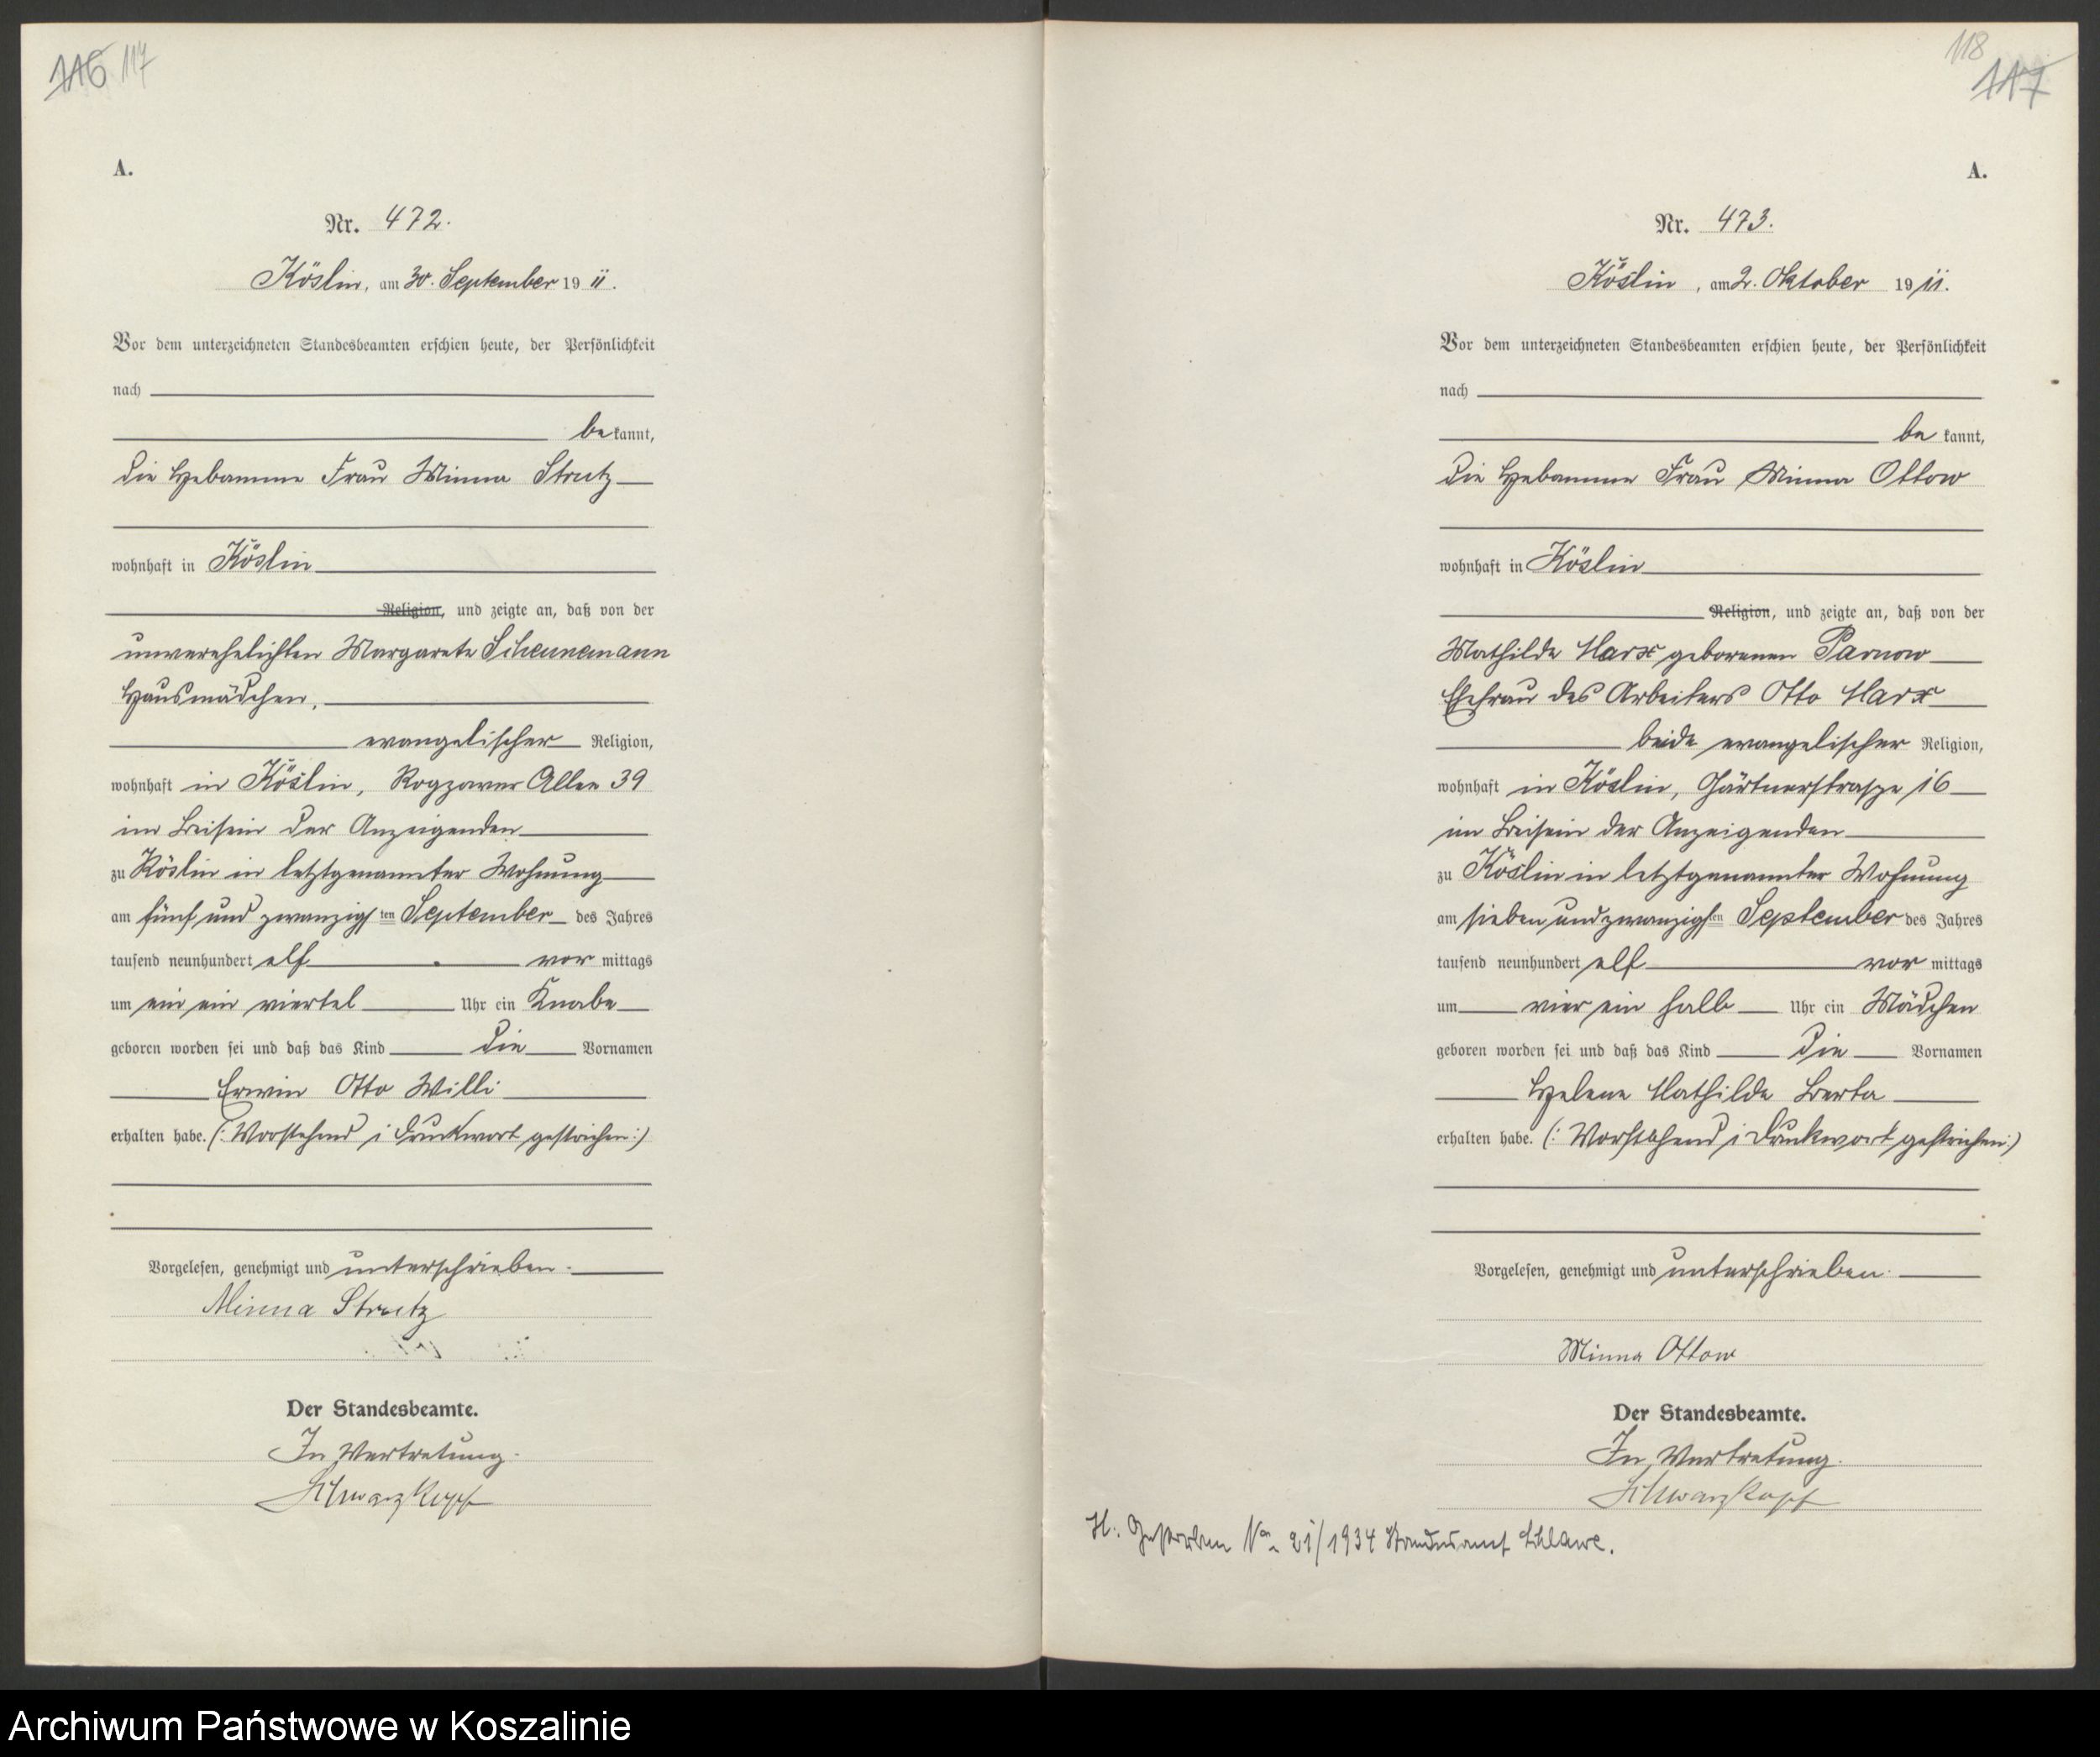 116 117
A.
Nr. 472.
Köslin, am 30. September 19 11.
Vor dem unterzeichneten Standesbeamten erschien heute, der Persönlichkeit
nach
be kannt,
die Hebamme Frau Minna Strutz
wohnhaft in Köslin
Religion, und zeigte an, daß von der
unverehelichten Margarete Scheunemann
Hausmädchen,
evangelischer Religion,
wohnhaft in Köslin, Rogzower Allee 39
im Beisein der Anzeigenden
zu Köslin in letztgenannter Wohnung
am fünf und zwanzigsten September des Jahres
tausend neunhundert elf vor mittags
um ein ein viertel Uhr ein Knabe
geboren worden sei und daß das Kind die Vornamen
Erwin Otto Willi
erhalten habe. (: Vorstehend 1 Druckwort gestrichen :)
Vorgelesen, genehmigt und unterschrieben.
Minna Strutz
Der Standesbeamte.
In Vertretung.
Schwarzkopf
118
117
A.
Nr. 473.
Köslin, am 2. Oktober 19 11.
Vor dem unterzeichneten Standesbeamten erschien heute, der Persönlichkeit
nach
be kannt,
die Hebamme Frau Minna Ottow
wohnhaft in Köslin
Religion, und zeigte an, daß von der
Mathilde Marx geborenen Parnow
Ehefrau des Arbeiters Otto Marx
beide evangelischer Religion,
wohnhaft in Köslin, Gärtnerstrasze 16
im Beisein der Anzeigenden
zu Köslin in letztgenannter Wohnung
am sieben und zwanzigsten September des Jahres
tausend neunhundert elf vor mittags
um vier ein halb Uhr ein Mädchen
geboren worden sei und daß das Kind die Vornamen
Helene Mathilde Berta
erhalten habe. (: Vorstehend 1 Druckwort gestrichen :)
Vorgelesen, genehmigt und unterschrieben.
Minna Ottow
Der Standesbeamte.
In Vertretung.
Schwarzkopf
H.: Gestorben Nr. 21/1934 Standesamt Schlawe.
Archiwum Państwowe w Koszalinie